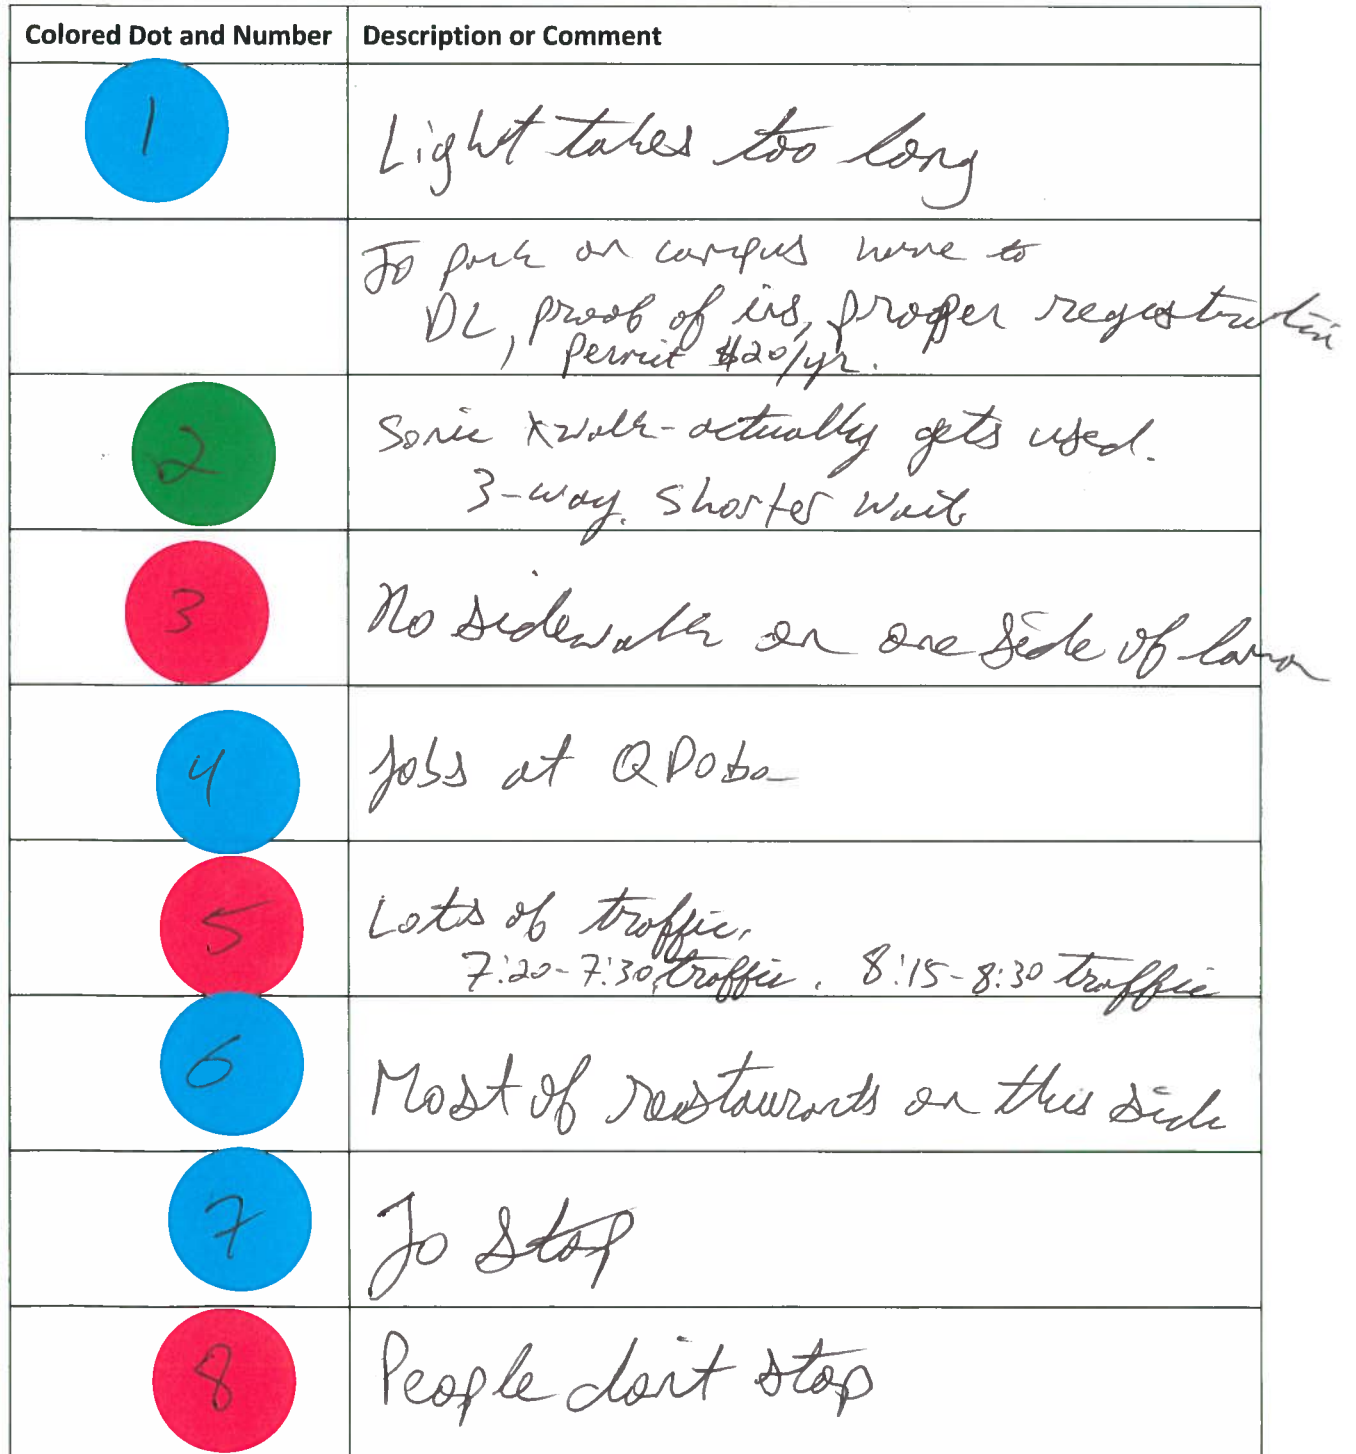 Colored Dot and Number Description or Comment
1 Light takes too long
To park on campus have to
DL, proof of ins, proper registration
Permit $20/yr.
2 Sonic Xwalk - actually gets used.
3-way. Shorter wait
3 No sidewalk on one side of
4 Jobs at QDoba
5 Lots of traffic.
7:20-7:30 traffic. 8:15-8:30 traffic
6 Most of restaurants on this side
7 To stop
8 People don't stop